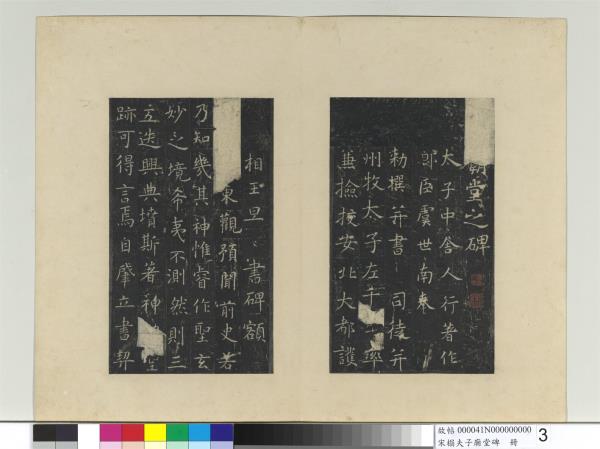 廟堂之碑
太子中舍人行著作
郎臣虞世南奉
勅撰并書 司徒并
州牧太子左千 率
兼撿挍安北大都護
相王旦 書碑額
東觀預聞前史若
乃知幾其神惟睿作聖玄
妙之境希夷不測然則三
五迭興典墳斯著神 聖
跡可得言焉自肇立書契
故帖 000041N000000000
宋搨夫子廟堂碑 冊
3